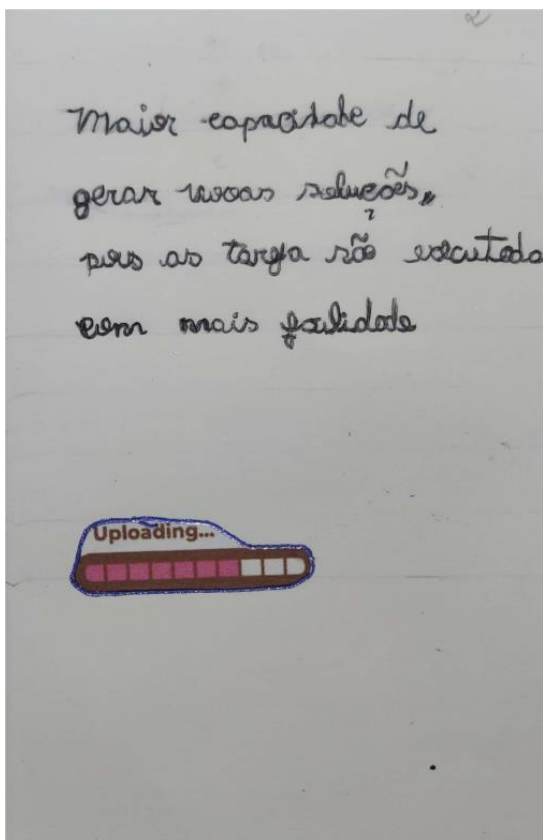 2
Maior capacidade de
gerar novas soluções,
pois as tarefa são executada
com mais facilidade
Uploading...